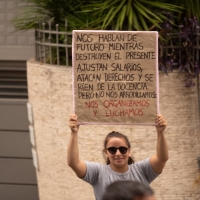 NOS HABLAN DE
FUTURO MIENTRAS
DESTRUYEN EL PRESENTE
AJUSTAN SALARIOS,
ATACAN DERECHOS Y SE
RÍEN DE LA DOCENCIA
PERO NO NOS ARRODILLAMOS
NOS ORGANIZAMOS
Y LUCHAMOS